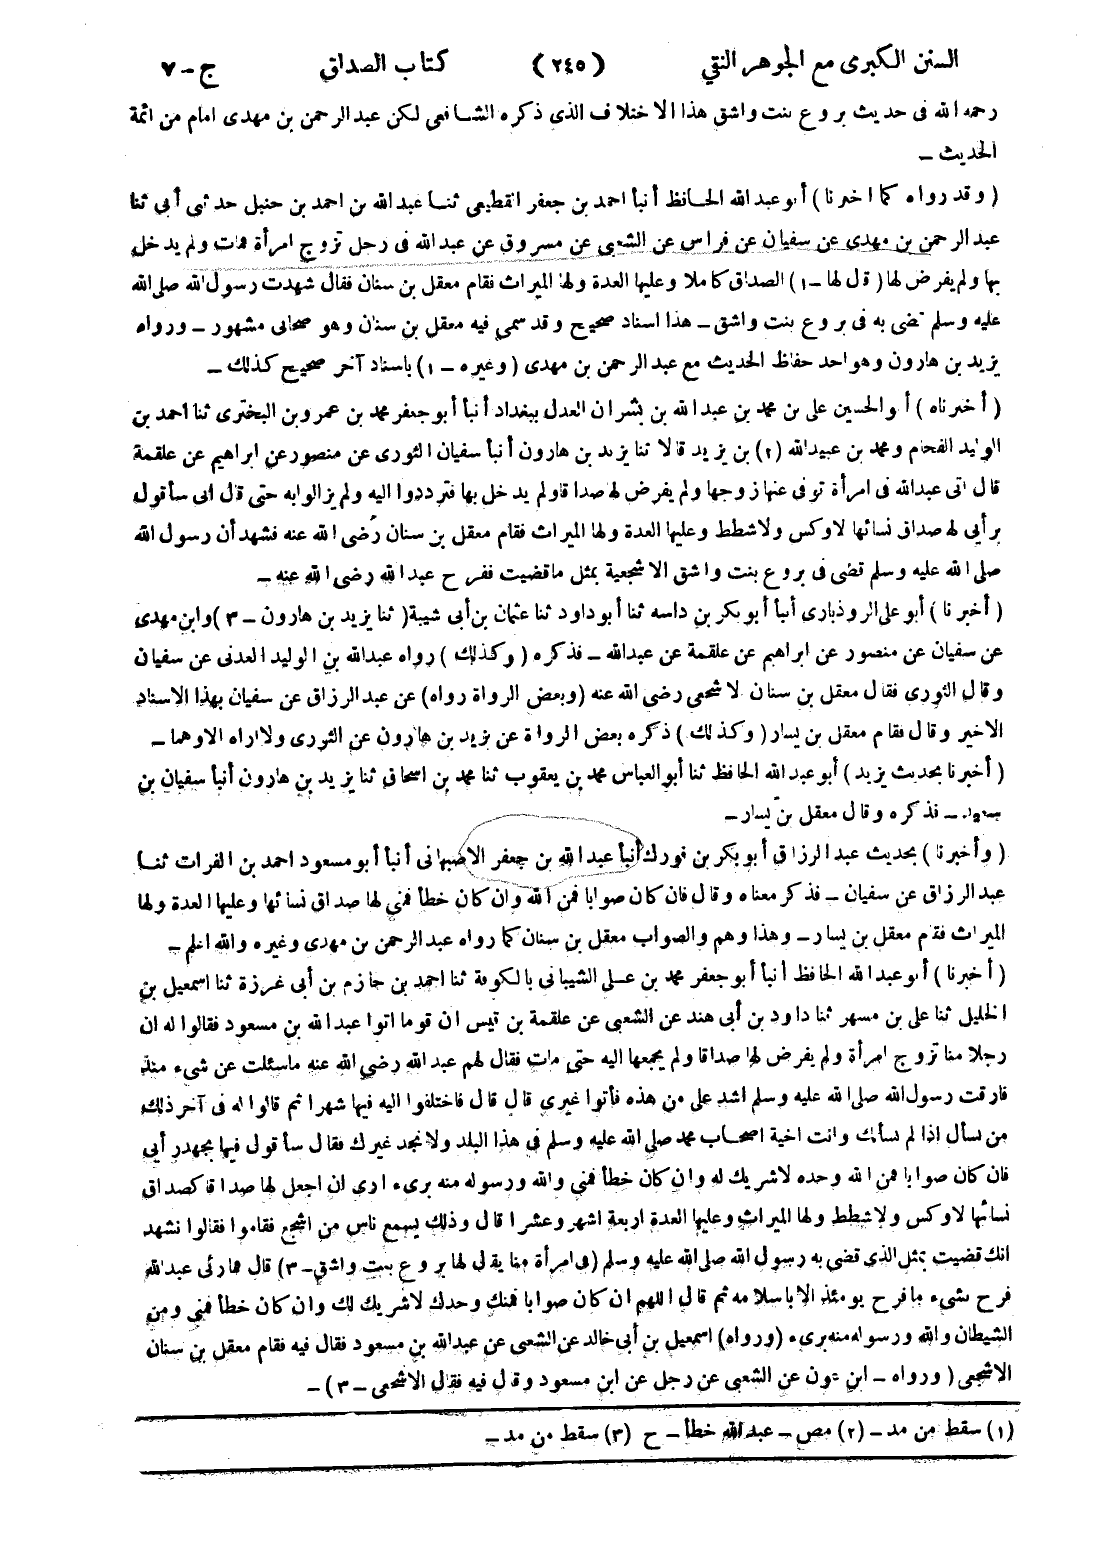 السنن الكبرى مع الجوهر النقي (٢٤٥) كتاب الصداق ج-٧
رحمه الله فى حديث بروع بنت واشق هذا الاختلاف الذى ذكره الشافعى لكن عبد الرحمن بن مهدى امام من ائمة
الحديث –
(وقد رواه كما اخبرنا) أبو عبد الله الحافظ أنبأ احمد بن جعفر القطيعى ثنا عبد الله بن احمد بن حنبل حدثنى أبى ثنا
عبد الرحمن بن مهدى عن سفيان عن فراس عن الشعبى عن مسروق عن عبد الله فى رجل تزوج امرأة فمات ولم يدخل
بها ولم يفرض لها (قال لها – ١) الصداق كاملا وعليها العدة ولها الميراث فقام معقل بن سنان فقال شهدت رسول الله صلى الله
عليه وسلم قضى به فى بروع بنت واشق – هذا اسناد صحيح وقد سمى فيه معقل بن سنان وهو صحابى مشهور – ورواه
يزيد بن هارون وهو احد حفاظ الحديث مع عبد الرحمن بن مهدى (وغيره – ١) باسناد آخر صحيح كذلك –
(أخبرناه) أبو الحسين على بن محمد بن عبد الله بن بشران العدل ببغداد أنبأ أبو جعفر محمد بن عمرو بن البخترى ثنا احمد بن
الوليد الفحام ومحمد بن عبيد الله (٢) بن يزيد قالا ثنا يزيد بن هارون أنبأ سفيان الثورى عن منصور عن ابراهيم عن علقمة
قال اتى عبد الله فى امرأة توفى عنها زوجها ولم يفرض لها صداقا ولم يدخل بها فترددوا اليه ولم يزالوا به حتى قال انى سأقول
برأيى لها صداق نسائها لا وكس ولا شطط وعليها العدة ولها الميراث فقام معقل بن سنان رضى الله عنه فشهد أن رسول الله
صلى الله عليه وسلم قضى فى بروع بنت واشق الاشجعية بمثل ما قضيت ففرح عبد الله رضى الله عنه –
(أخبرنا) أبو على الروذبارى أنبأ أبو بكر بن داسه ثنا أبو داود ثنا عثمان بن أبى شيبة (ثنا يزيد بن هارون – ٣) وابن مهدى
عن سفيان عن منصور عن ابراهيم عن علقمة عن عبد الله – فذكره (وكذلك) رواه عبد الله بن الوليد العدنى عن سفيان
وقال الثورى فقال معقل بن سنان الاشجعى رضى الله عنه (وبعض الرواة رواه) عن عبد الرزاق عن سفيان بهذا الاسناد
الاخير وقال فقام معقل بن يسار (وكذلك) ذكره بعض الرواة عن يزيد بن هارون عن الثورى ولا اراه الا وهما –
(أخبرنا بحديث يزيد) أبو عبد الله الحافظ ثنا أبو العباس محمد بن يعقوب ثنا محمد بن اسحاق ثنا يزيد بن هارون أنبأ سفيان بن
سعيد – فذكره وقال معقل بن يسار –
(وأخبرنا) بحديث عبد الرزاق أبو بكر بن فورك أنبأ عبد الله بن جعفر الاصبهانى أنبأ أبو مسعود احمد بن الفرات ثنا
عبد الرزاق عن سفيان – فذكر معناه وقال فان كان صوابا فمن الله وان كان خطأ فمنى لها صداق نسائها وعليها العدة ولها
الميراث فقام معقل بن يسار – وهذا وهم والصواب معقل بن سنان كما رواه عبد الرحمن بن مهدى وغيره والله اعلم –
(أخبرنا) أبو عبد الله الحافظ أنبأ أبو جعفر محمد بن على الشيبانى بالكوفة ثنا احمد بن حازم بن أبى غرزة ثنا اسمعيل بن
الخليل ثنا على بن مسهر ثنا داود بن أبى هند عن الشعبى عن علقمة بن قيس ان قوما اتوا عبد الله بن مسعود فقالوا له ان
رجلا منا تزوج امرأة ولم يفرض لها صداقا ولم يجمعها اليه حتى مات فقال لهم عبد الله رضى الله عنه ما سئلت عن شىء منذ
فارقت رسول الله صلى الله عليه وسلم اشد على من هذه فأتوا غيرى قال قال فاختلفوا اليه فيها شهرا ثم قالوا له فى آخر ذلك
من نسأل اذا لم نسألك وانت اخية اصحاب محمد صلى الله عليه وسلم فى هذا البلد ولا نجد غيرك فقال سأقول فيها بجهد رأيى
فان كان صوابا فمن الله وحده لا شريك له وان كان خطأ فمنى والله ورسوله منه برىء ارى ان اجعل لها صداقا كصداق
نسائها لا وكس ولا شطط ولها الميراث وعليها العدة اربعة اشهر وعشرا قال وذلك يسمع ناس من اشجع فقاموا فقالوا نشهد
انك قضيت بمثل الذى قضى به رسول الله صلى الله عليه وسلم (فى امرأة منا يقال لها بروع بنت واشق – ٣) قال فما رئى عبد الله
فرح بشىء ما فرح يومئذ الا باسلامه ثم قال اللهم ان كان صوابا فمنك وحدك لا شريك لك وان كان خطأ فمنى ومن
الشيطان والله ورسوله منه برىء (ورواه) اسمعيل بن أبى خالد عن الشعبى عن عبد الله بن مسعود فقال فيه فقام معقل بن سنان
الاشجعى (ورواه – ابن عون عن الشعبى عن رجل عن ابن مسعود وقال فيه فقال الاشجعى – ٣) –
(١) سقط من مد – (٢) مص – عبد الله خطأ – ح (٣) سقط من مد –